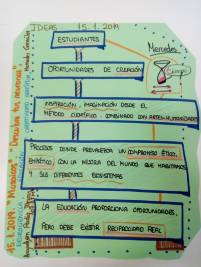 IDEAS 15.1.2019
ESTUDIANTES
Mercedes
OPORTUNIDADES DE CREACIÓN
Tiempo
INSPIRACIÓN, IMAGINACIÓN DESDE EL
MÉTODO CIENTÍFICO, COMBINADO CON ARTE Y HUMANIDADES
PROCESOS DONDE PREVALECEN UN COMPROMISO ÉTICO,
EMPÁTICO, CON LA MEJORA DEL MUNDO QUE HABITAMOS
Y SUS DIFERENTES ECOSISTEMAS
LA EDUCACIÓN PROPORCIONA OPORTUNIDADES,
PERO DEBE EXISTIR RECIPROCIDAD REAL
15.1.2019. "Mosaicos"